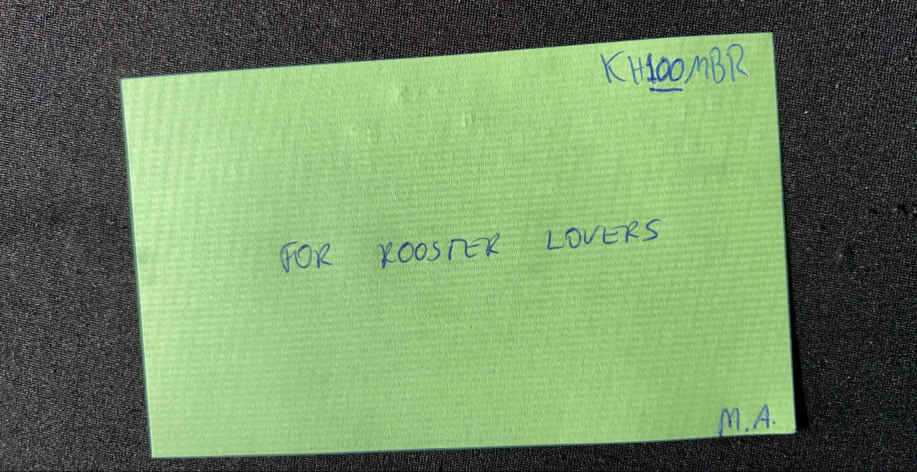 KH100MBR
FOR ROOSTER LOVERS
M.A.